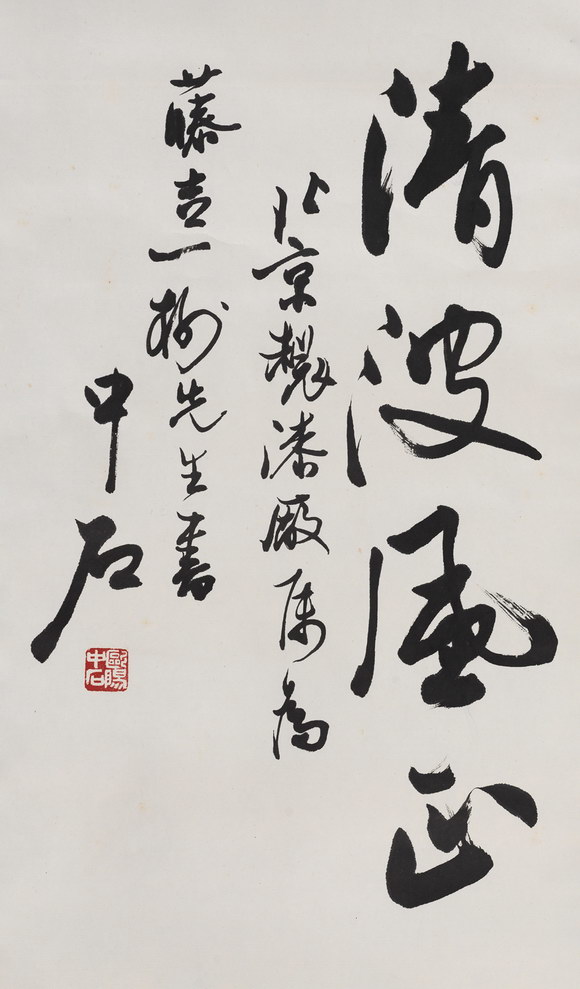 清波風正
北京製漆廠属為
藤吉一樹先生書
中石
歐陽中石